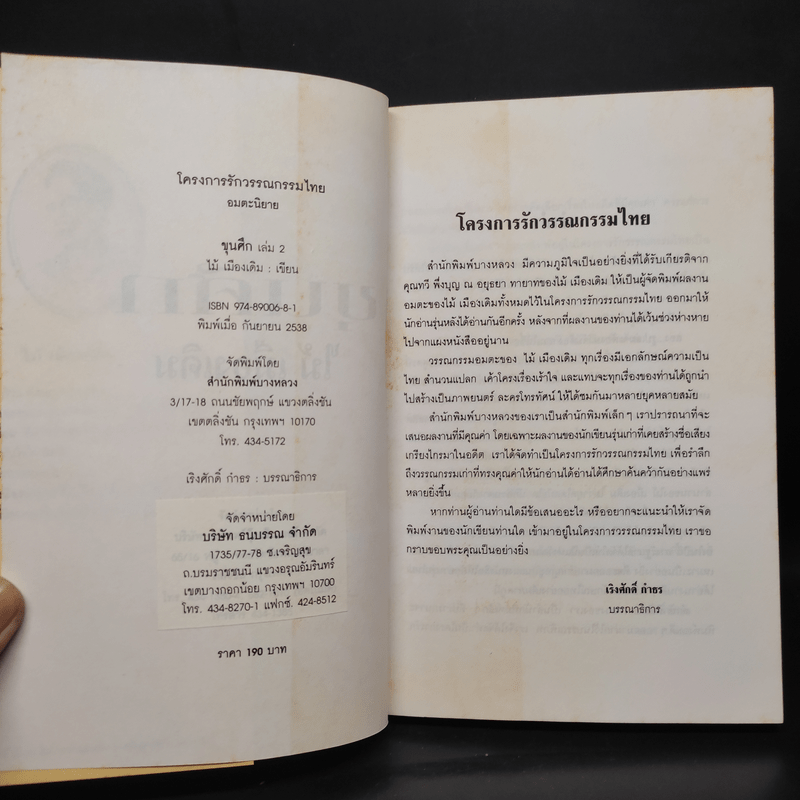 โครงการรักวรรณกรรมไทย
อมตะนิยาย
ขุนศึก เล่ม 2
ไม้ เมืองเดิม : เขียน
ISBN 974-89006-8-1
พิมพ์เมื่อ กันยายน 2538
จัดพิมพ์โดย
สำนักพิมพ์บางหลวง
3/17-18 ถนนชัยพฤกษ์ แขวงตลิ่งชัน
เขตตลิ่งชัน กรุงเทพฯ 10170
โทร. 434-5172
เริงศักดิ์ กำธร : บรรณาธิการ
จัดจำหน่ายโดย
บริษัท ธนบรรณ จำกัด
1735/77-78 ซ.เจริญสุข
ถ.บรมราชชนนี แขวงอรุณอัมรินทร์
เขตบางกอกน้อย กรุงเทพฯ 10700
โทร. 434-8270-1 แฟกซ์. 424-8512
ราคา 190 บาท
โครงการรักวรรณกรรมไทย
สำนักพิมพ์บางหลวง มีความภูมิใจเป็นอย่างยิ่งที่ได้รับเกียรติจาก
คุณทวี พึ่งบุญ ณ อยุธยา ทายาทของไม้ เมืองเดิม ให้เป็นผู้จัดพิมพ์ผลงาน
อมตะของไม้ เมืองเดิมทั้งหมดไว้ในโครงการรักวรรณกรรมไทย ออกมาให้
นักอ่านรุ่นหลังได้อ่านกันอีกครั้ง หลังจากที่ผลงานของท่านได้เว้นช่วงห่างหาย
ไปจากแผงหนังสืออยู่นาน
วรรณกรรมอมตะของ ไม้ เมืองเดิม ทุกเรื่องมีเอกลักษณ์ความเป็น
ไทย สำนวนแปลก เค้าโครงเรื่องเร้าใจ และแทบจะทุกเรื่องของท่านได้ถูกนำ
ไปสร้างเป็นภาพยนตร์ ละครโทรทัศน์ ให้ได้ชมกันมาหลายยุคหลายสมัย
สำนักพิมพ์บางหลวงของเราเป็นสำนักพิมพ์เล็ก ๆ เราปรารถนาที่จะ
เสนอผลงานที่มีคุณค่า โดยเฉพาะผลงานของนักเขียนรุ่นเก่าที่เคยสร้างชื่อเสียง
เกรียงไกรมาในอดีต เราได้จัดทำเป็นโครงการรักวรรณกรรมไทย เพื่อรำลึก
ถึงวรรณกรรมเก่าที่ทรงคุณค่าให้นักอ่านได้อ่านได้ศึกษาค้นคว้ากันอย่างแพร่
หลายยิ่งขึ้น
หากท่านผู้อ่านท่านใดมีข้อเสนออะไร หรืออยากจะแนะนำให้เราจัด
พิมพ์งานของนักเขียนท่านใด เข้ามาอยู่ในโครงการวรรณกรรมไทย เราขอ
กราบขอบพระคุณเป็นอย่างยิ่ง
เริงศักดิ์ กำธร
บรรณาธิการ